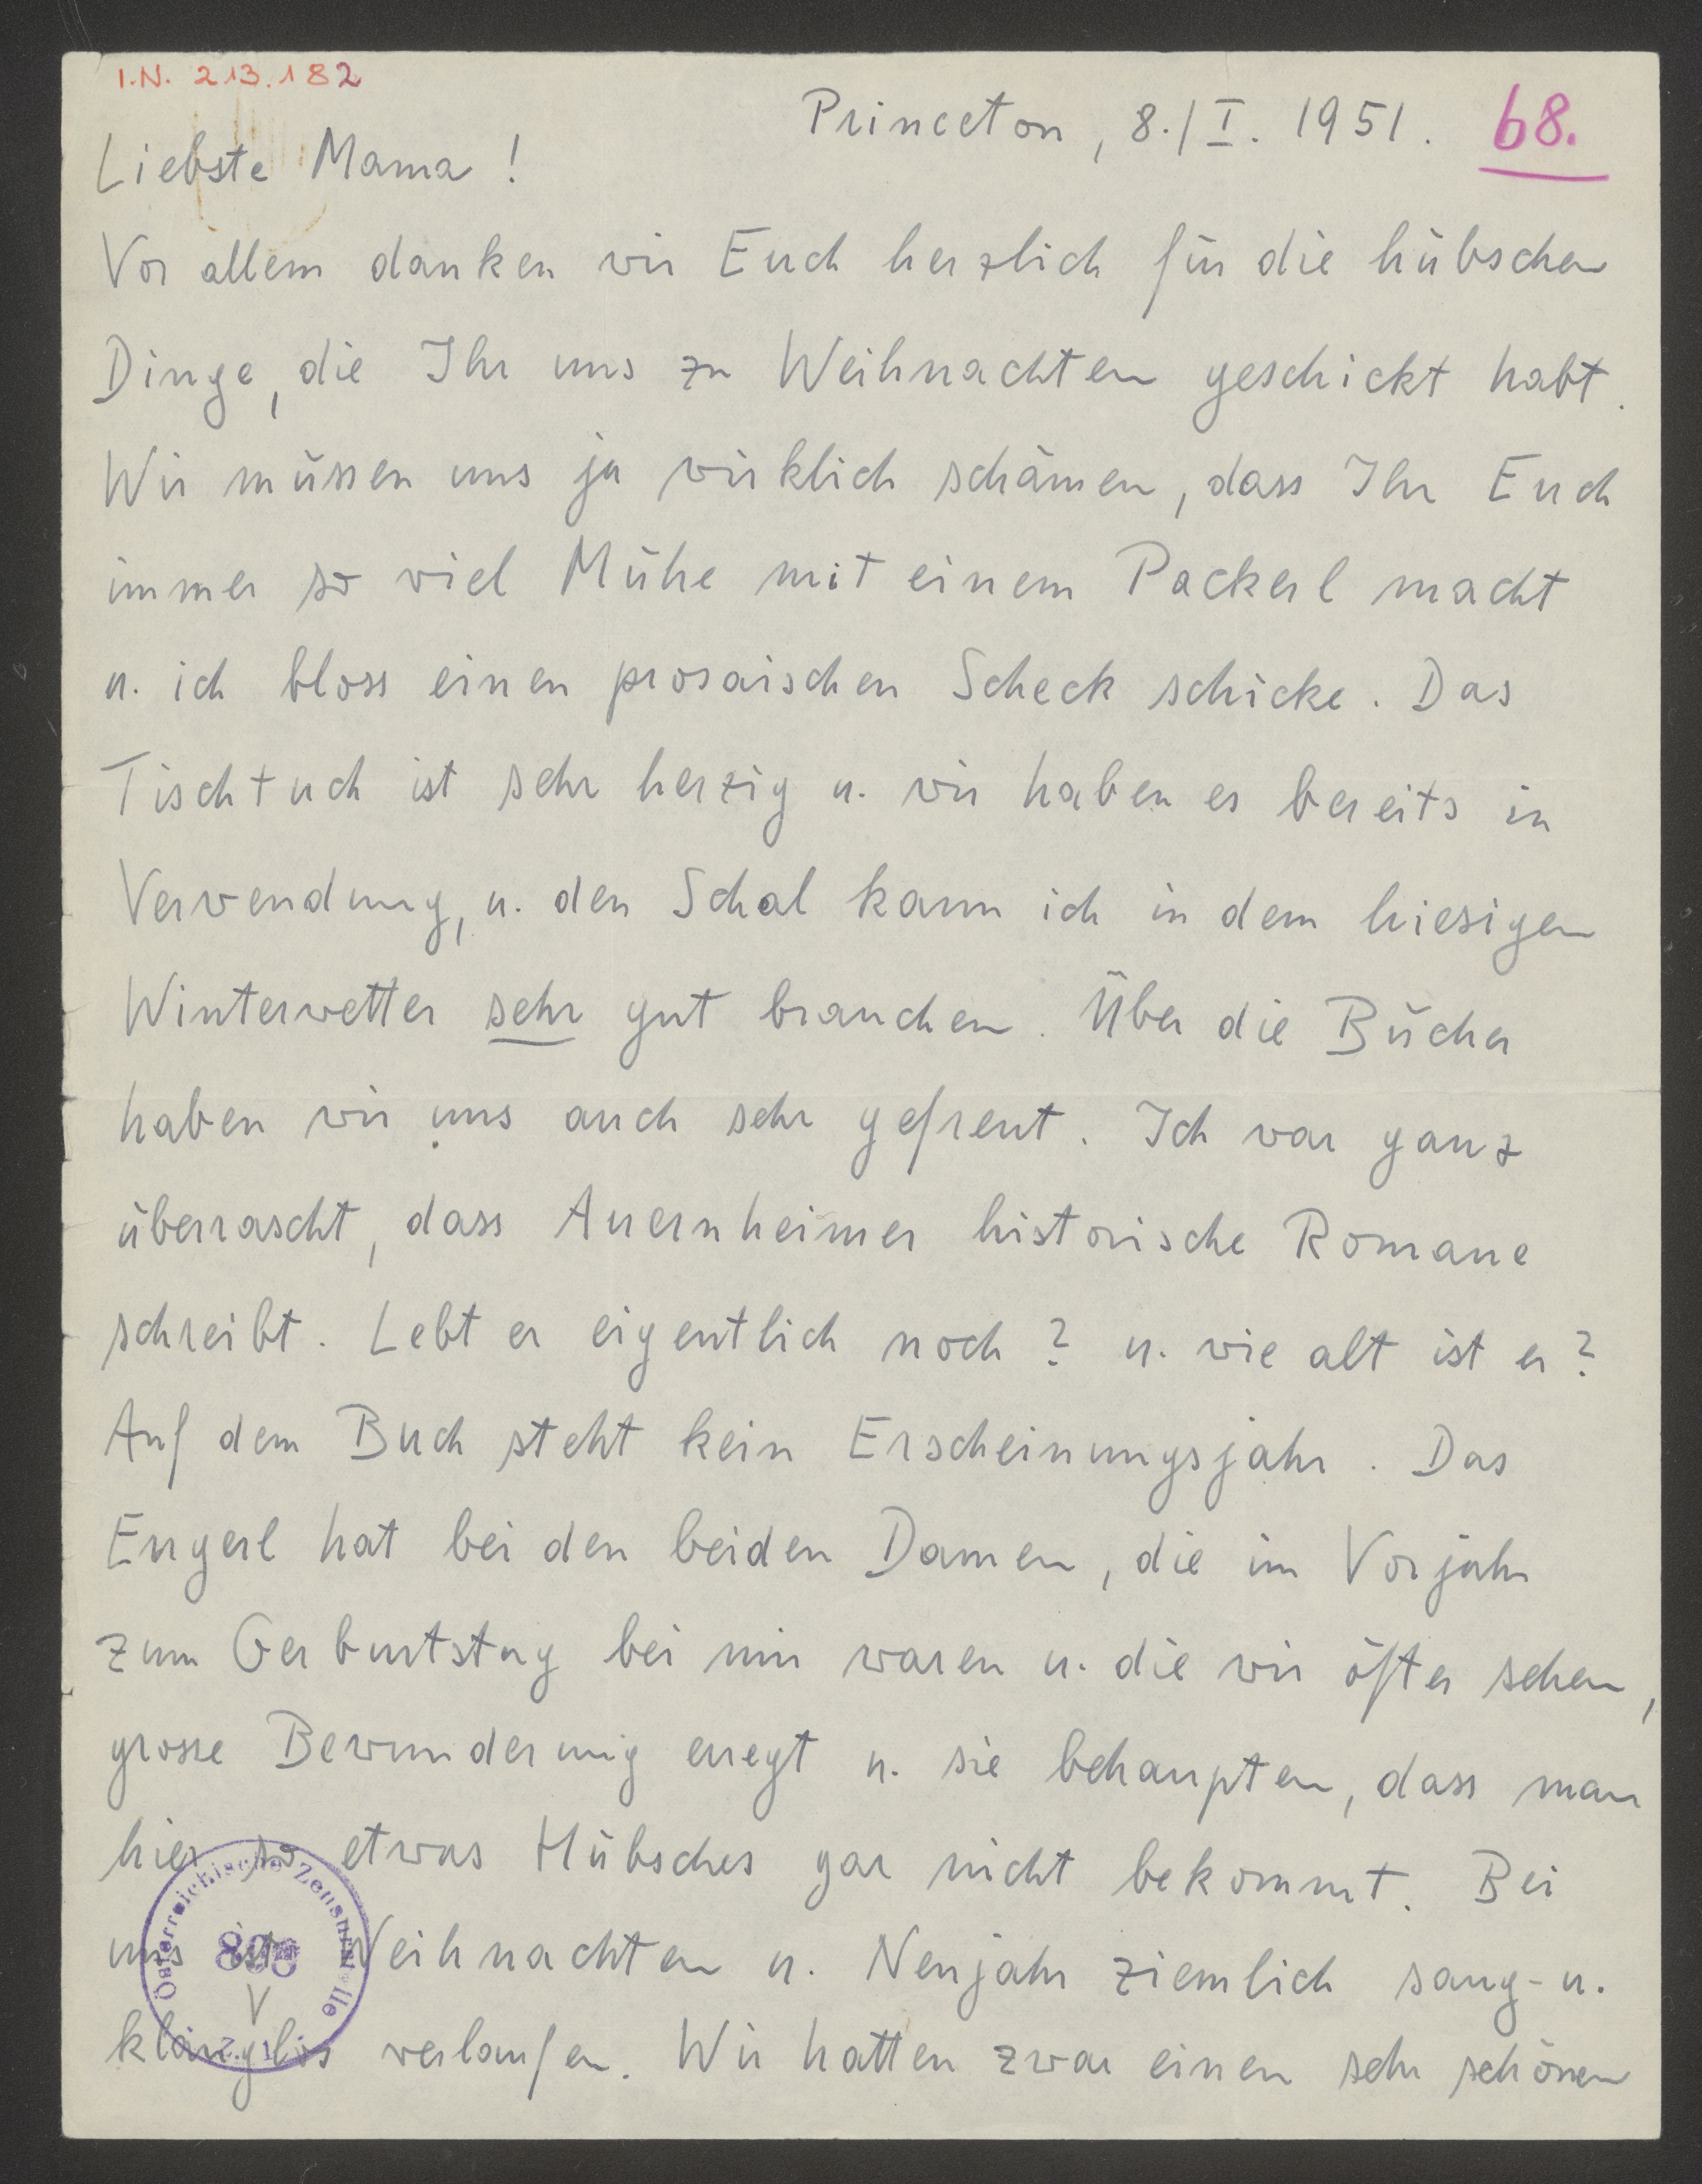 I.N. 213.182
Princeton, 8./I. 1951. 68.
Liebste Mama!
Vor allem danken wir Euch herzlich für die hübschen
Dinge, die Ihr uns zu Weihnachten geschickt habt.
Wir müssen uns ja wirklich schämen, dass Ihr Euch
immer so viel Mühe mit einem Packerl macht
u. ich bloss einen prosaischen Scheck schicke. Das
Tischtuch ist sehr herzig u. wir haben es bereits in
Verwendung, u. den Schal kann ich in dem hiesigen
Winterwetter sehr gut brauchen. Über die Bücher
haben wir uns auch sehr gefreut. Ich war ganz
überrascht, dass Auernheimer historische Romane
schreibt. Lebt er eigentlich noch? u. wie alt ist er?
Auf dem Buch steht kein Erscheinungsjahr. Das
Engerl hat bei den beiden Damen, die im Vorjahr
zum Geburtstag bei mir waren u. die wir öfter sehen,
grosse Bewunderung erregt u. sie behaupten, dass man
hier so etwas Hübsches gar nicht bekommt. Bei
uns ist Weihnachten u. Neujahr ziemlich sang- u.
klanglos verlaufen. Wir hatten zwar einen sehr schönen
Österreichische Zensurstelle
898